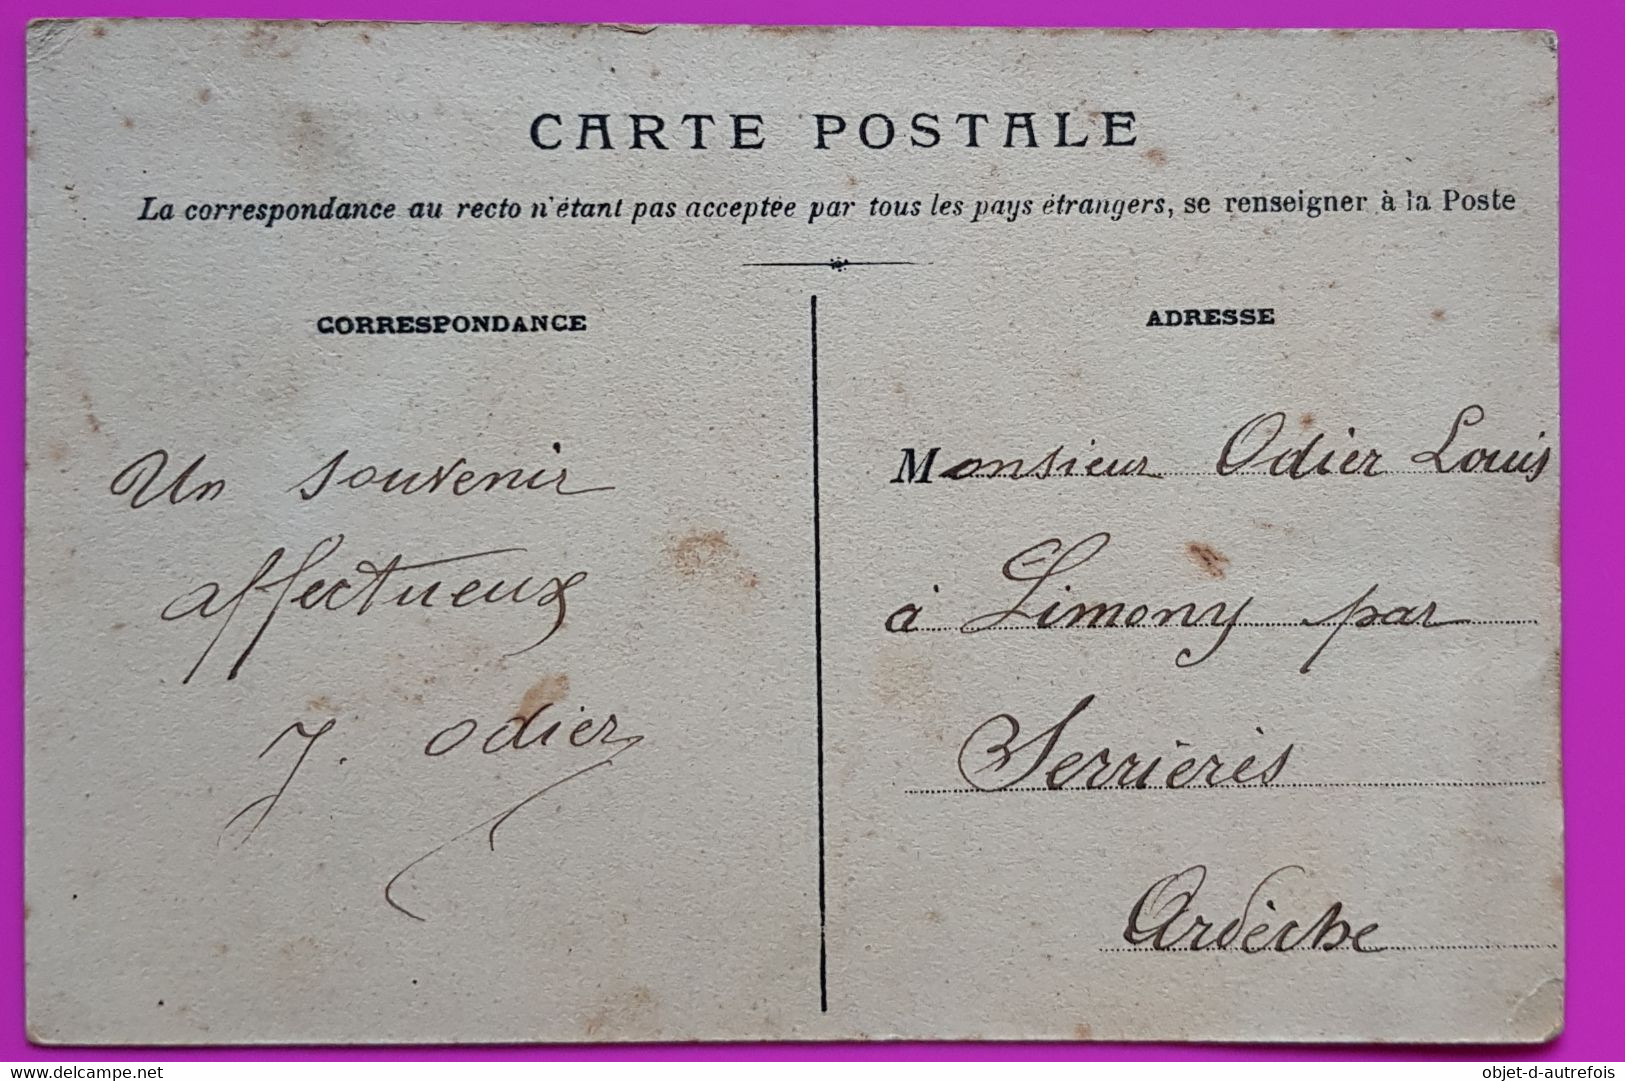 CARTE POSTALE
La correspondance au recto n'étant pas acceptée par tous les pays étrangers, se renseigner à la Poste
CORRESPONDANCE
Un souvenir
affectueux
J. Odier
ADRESSE
Monsieur Odier Louis
à Limony par
Serrières
Ardèche
https://www.delcampe.net
objet-d-autrefois